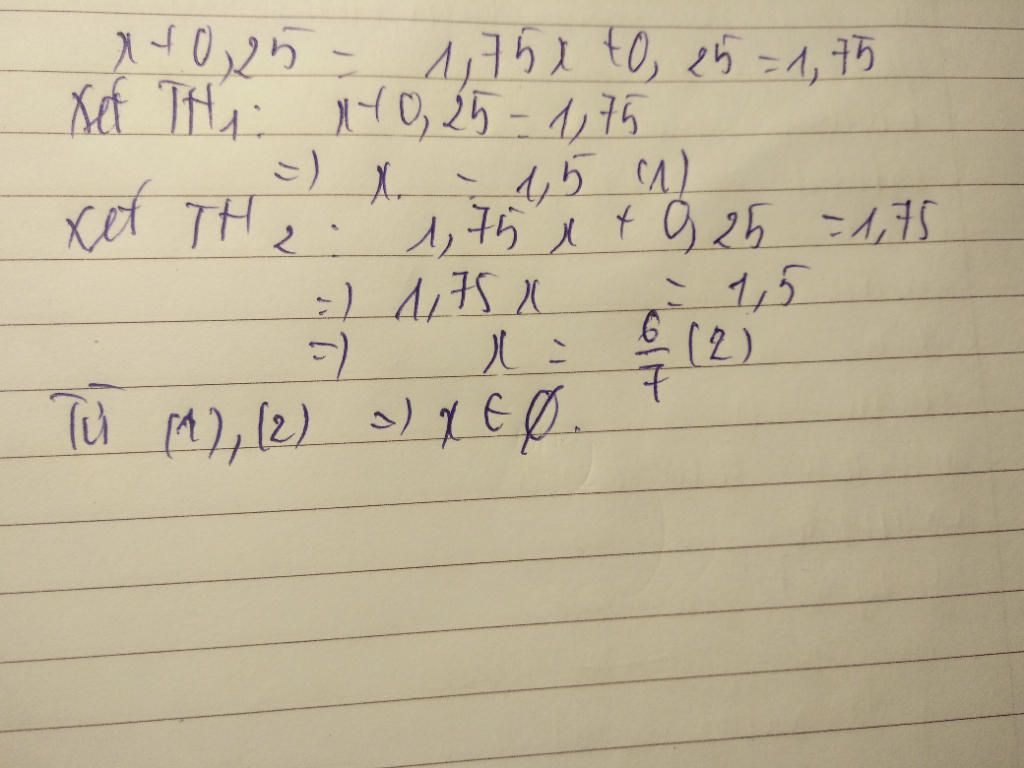 x+0,25 = 1,75x +0,25 =1,75
Xét TH1: x+0,25 = 1,75
=) x. = 1,5 (1)
xét TH2: 1,75x + 0,25 =1,75
=) 1,75x = 1,5
=) x = 6/7 (2)
Từ (1),(2) =) x ∈ ∅.